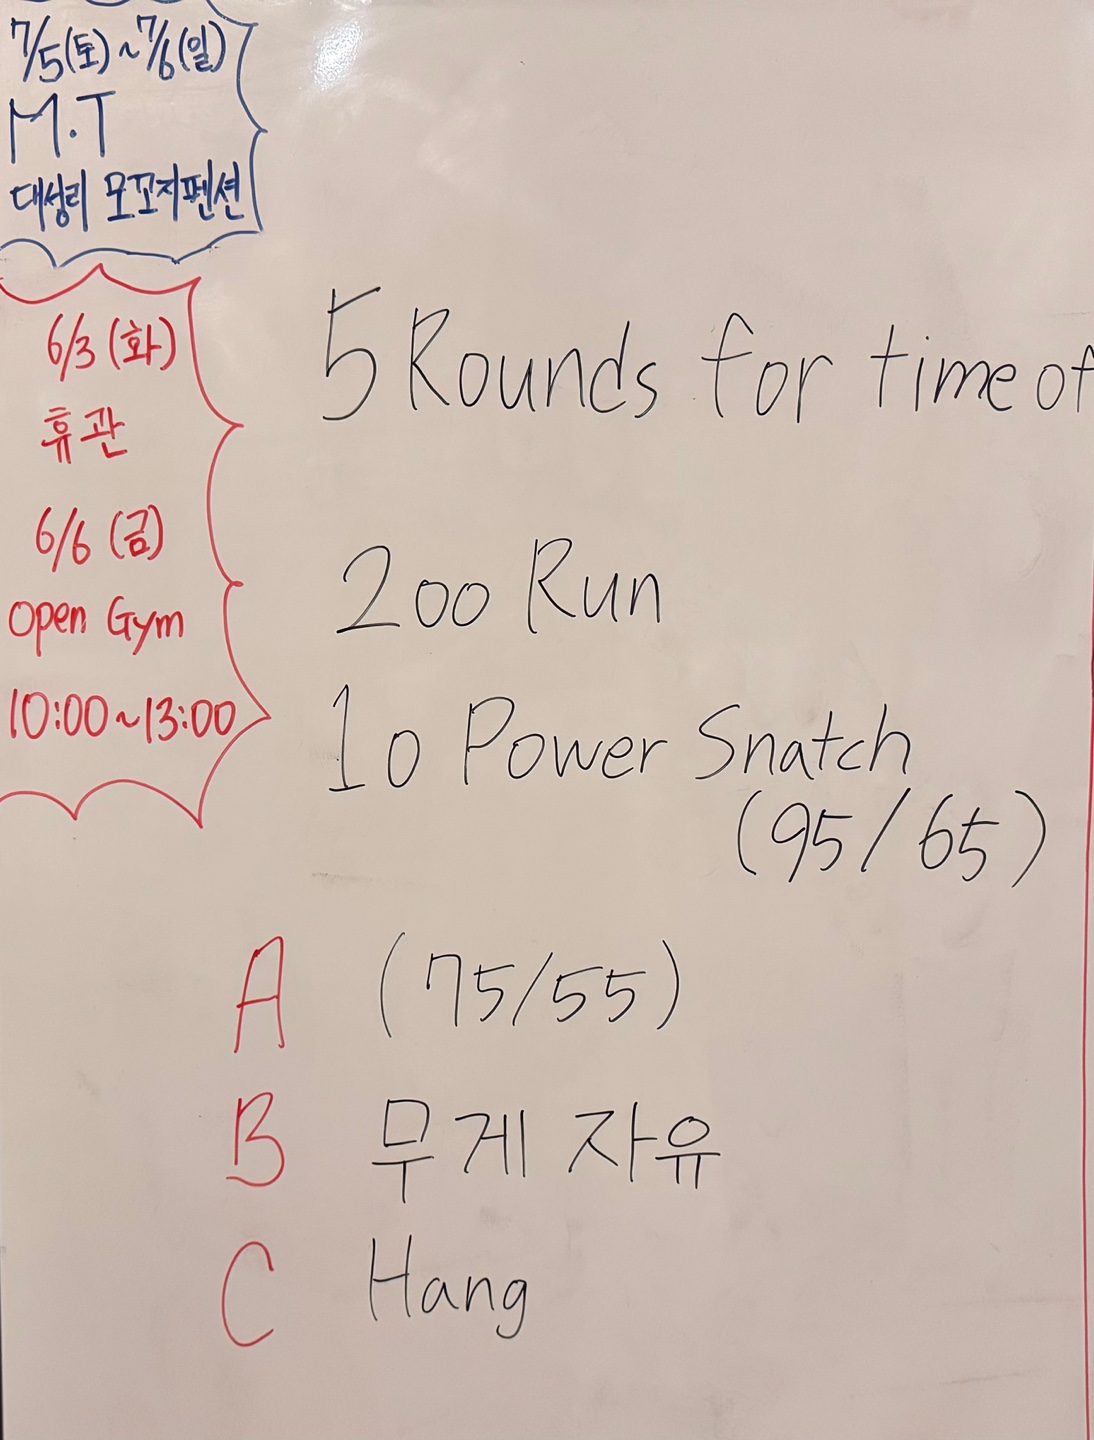 7/5(토)~7/6(일)
M.T
대성리 모꼬지펜션
6/3 (화)
휴관
6/6 (금)
Open Gym
10:00~13:00
5 Rounds for time of
200 Run
10 Power Snatch
(95/65)
A (75/55)
B 무게 자유
C Hang